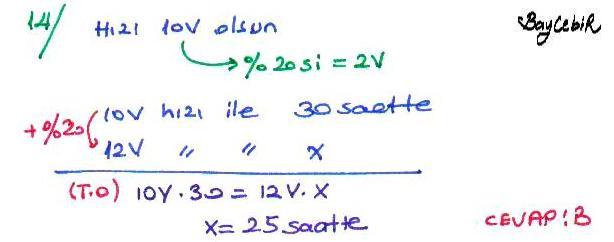 14/ Hızı 10V olsun BayCebiR
→ %20si = 2V
+%20 10V hızı ile 30 saatte
12V " " x
(T.O) 10V.30 = 12V.X
X= 25 saatte
CEVAP:B